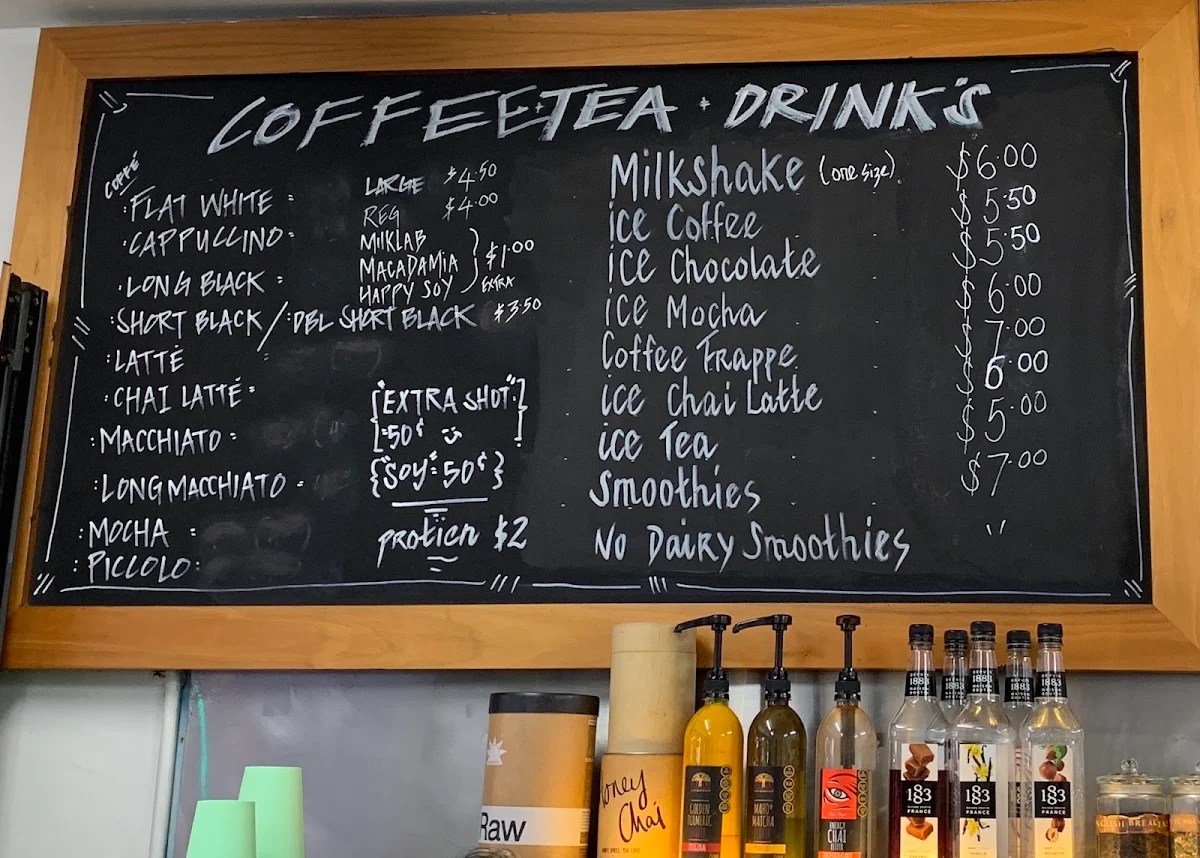 COFFEE + TEA + DRINK'S
COFFÉ
·FLAT WHITE =
·CAPPUCCINO=
·LONG BLACK =
·SHORT BLACK / ·DBL SHORT BLACK $3·50
·LATTÉ =
·CHAI LATTÉ=
·MACCHIATO =
·LONG MACCHIATO =
·MOCHA =
·PICCOLO:
LARGE $4·50
REG $4·00
MILKLAB
MACADAMIA
HAPPY SOY
$1·00
EXTRA
{"EXTRA SHOT"}
=50¢
{"SOY"=50¢}
protien $2
Milkshake (one size) $6·00
ice Coffee $5·50
ice Chocolate $5·50
ice Mocha $6·00
Coffee Frappe $7·00
ice Chai Latte $6·00
ice Tea $5·00
Smoothies $7·00
No Dairy Smoothies "
Raw
Honey
Chai
GOLDEN
TURMERIC
ORIGINAL
MATCHA
CHAI
ELIXIR
1883
1883
1883
1883
1883
1883
FRANCE
1883
FRANCE
1883
FRANCE
ENGLISH BREAKFAST